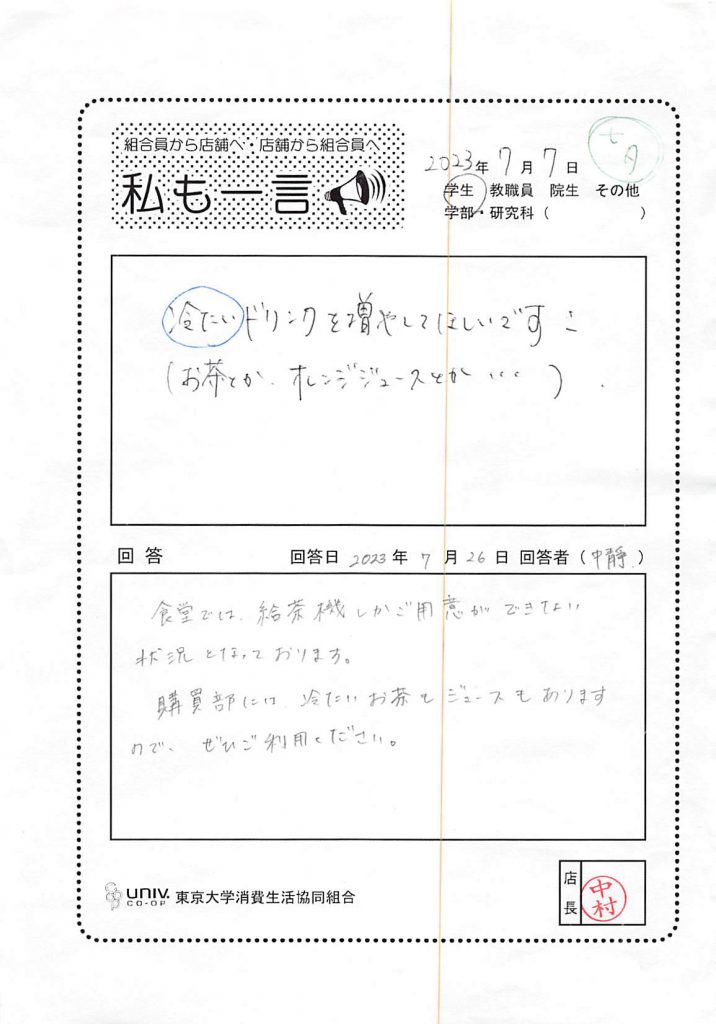 組合員から店舗へ・店舗から組合員へ
私も一言
2023年 7月 7日
学生 教職員 院生 その他
学部・研究科( )
冷たいドリンクを増やしてほしいです
(お茶とか、オレンジジュースとか…)
回答 回答日 2023年 7月26日 回答者(中静)
食堂では、給茶機しかご用意ができない
状況となっております。
購買部には、冷たいお茶もジュースもあります
ので、ぜひご利用ください。
UNIV. CO-OP 東京大学消費生活協同組合
店長 中村